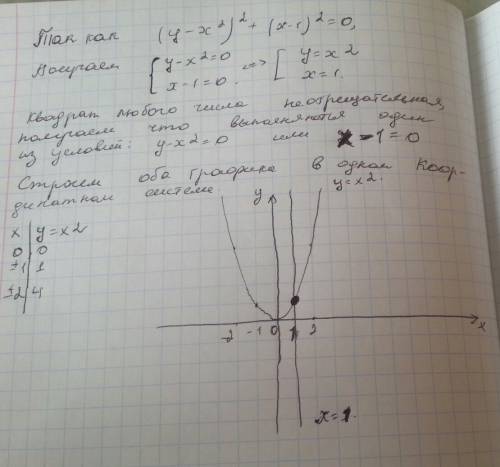 Так как (y-x²)²+(x-1)²=0,
Получаем { y-x²=0 x-1=0. => [ y=x2 x=1.
Квадрат любого числа неотрецательная,
получаем что выполняются один
из условий: y-x²=0 или x-1=0
Строем оба графика в одном коор-
динатном системе y=x2.
x y=x2
0 0
±1 1
±2 4
y
-2 -1 0 1 2 x
x=1.